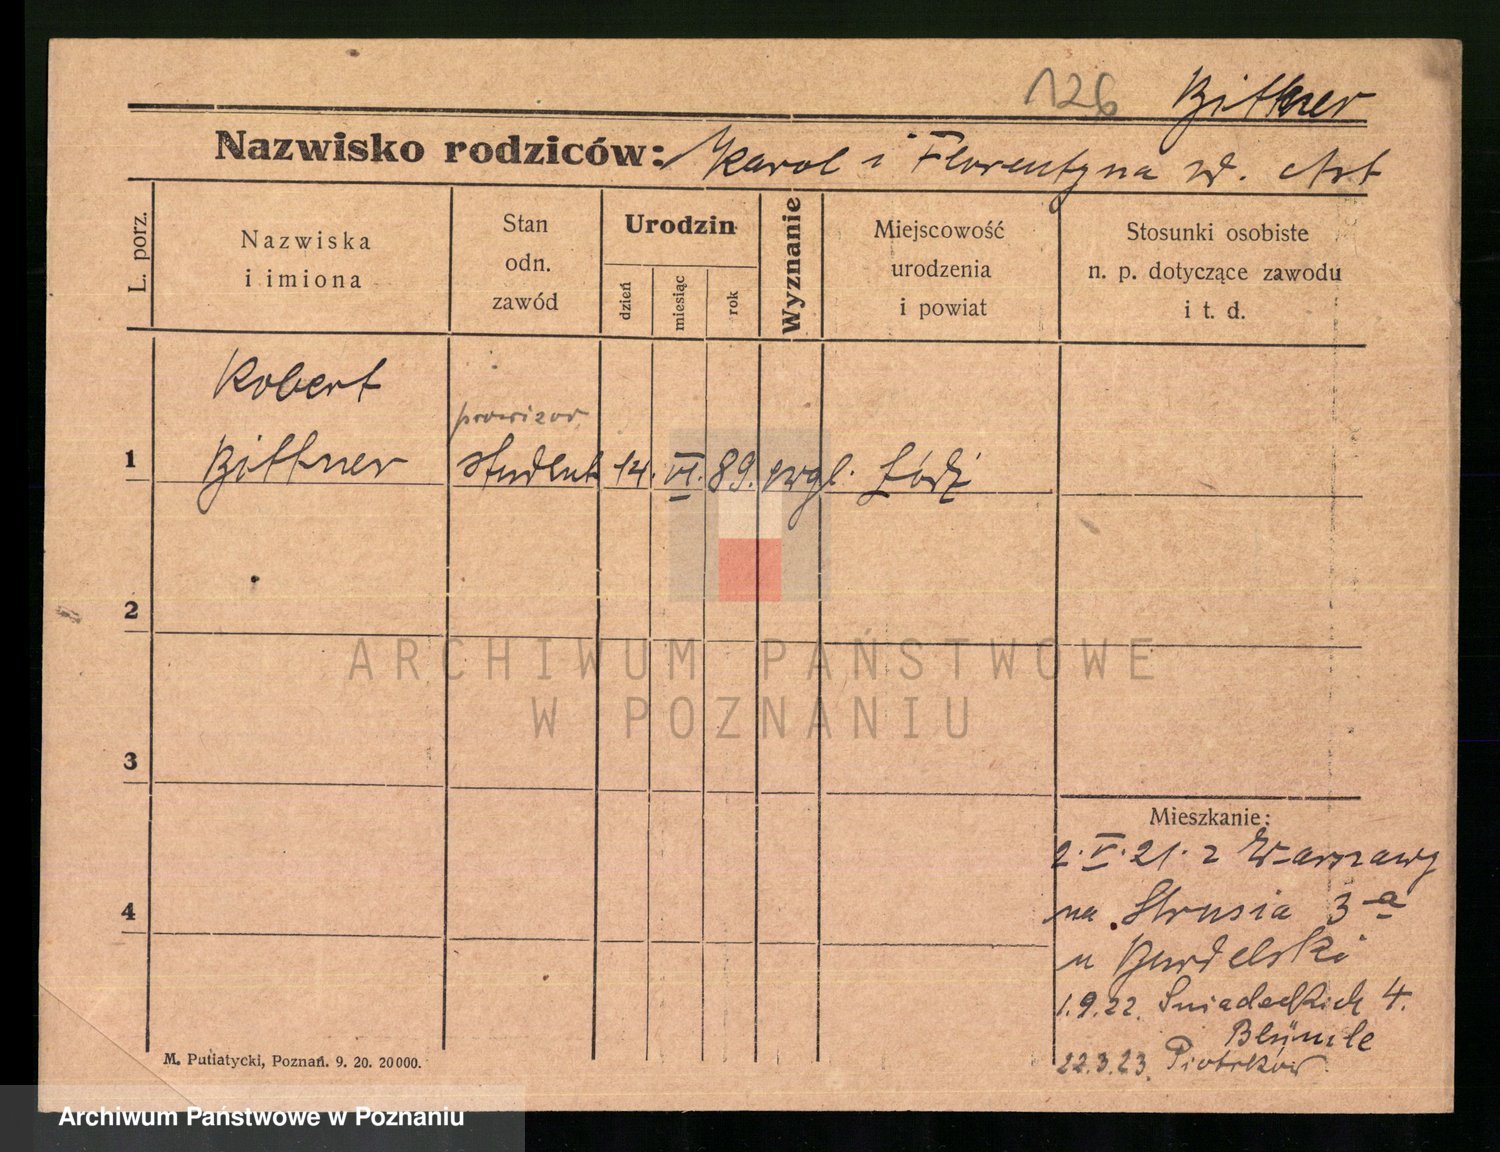 126 Bittner
Nazwisko rodziców: Karol i Florentyna zd. Art
L. porz.
Nazwiska
i imiona
Stan
odn.
zawód
Urodzin
dzień
miesiąc
rok
Wyznanie
Miejscowość
urodzenia
i powiat
Stosunki osobiste
n. p. dotyczące zawodu
i t. d.
Robert
prowizor
1 Bittner student 14. VI. 89. ewgl. Łódź
2
3
4
Mieszkanie:
2. V. 21. z Warszawy
na Strusia 3 a
u Burdelski
1.9.22. Sniadeckich 4.
Blümle
22.3.23. Piotrków
M. Putiatycki, Poznań. 9. 20. 20000.
ARCHIWUM PAŃSTWOWE
W POZNANIU
Archiwum Państwowe w Poznaniu